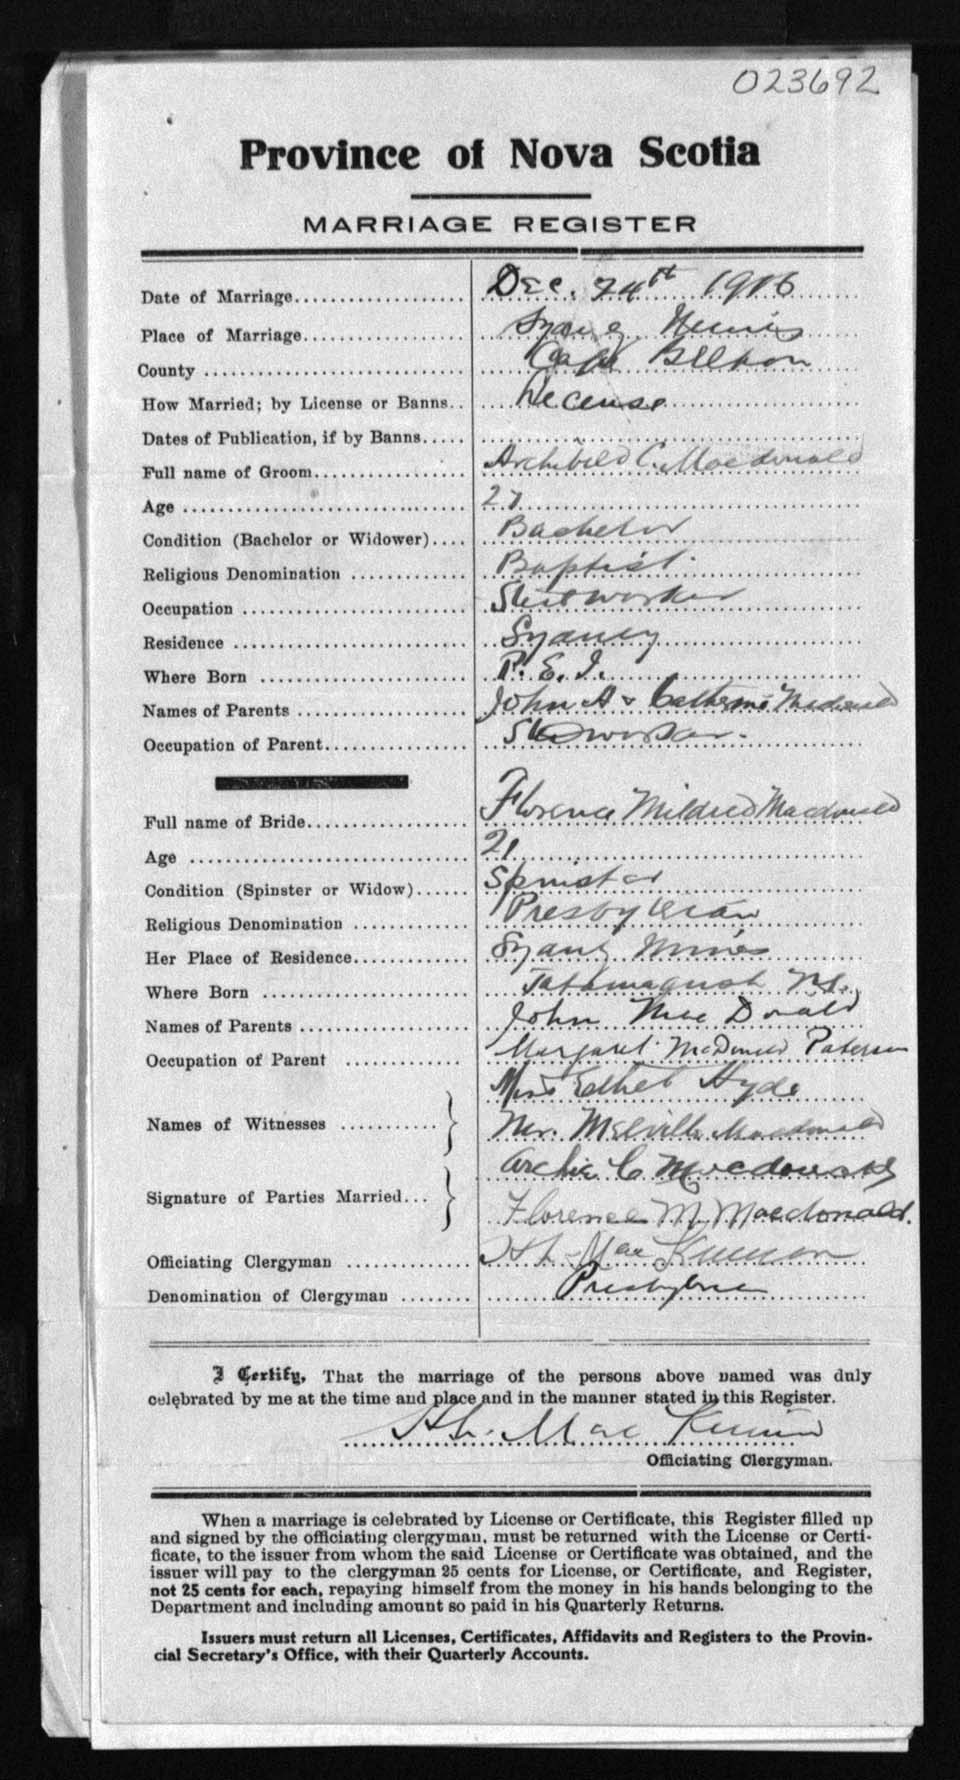 023692
Province of Nova Scotia
MARRIAGE REGISTER
Date of Marriage Dec. 24th 1916
Place of Marriage Sydney Mines
County Cape Breton
How Married; by License or Banns License
Dates of Publication, if by Banns
Full name of Groom Archibald C. Macdonald
Age 27
Condition (Bachelor or Widower) Bachelor
Religious Denomination Baptist
Occupation Steelworker
Residence Sydney
Where Born P. E. I.
Names of Parents John A & Catherine Macdonald
Occupation of Parent
Full name of Bride Florence Mildred Macdonald
Age 21
Condition (Spinster or Widow) Spinster
Religious Denomination Presbyterian
Her Place of Residence Sydney Mines
Where Born Tatamagush N.S.
Names of Parents John Mac Donald
Occupation of Parent Margaret McDonald Paterson
Names of Witnesses Miss Ethel Hyde
Mr. Melville Macdonald
Signature of Parties Married Archie C Macdonald
Florence M. Macdonald.
Officiating Clergyman Mac Kinnon
Denomination of Clergyman Presbyterian
I Certify, That the marriage of the persons above named was duly
celebrated by me at the time and place and in the manner stated in this Register.
Mac Kinnon
Officiating Clergyman.
When a marriage is celebrated by License or Certificate, this Register filled up
and signed by the officiating clergyman, must be returned with the License or Certi-
ficate, to the issuer from whom the said License or Certificate was obtained, and the
issuer will pay to the clergyman 25 cents for License, or Certificate, and Register,
not 25 cents for each, repaying himself from the money in his hands belonging to the
Department and including amount so paid in his Quarterly Returns.
Issuers must return all Licenses, Certificates, Affidavits and Registers to the Provin-
cial Secretary's Office, with their Quarterly Accounts.